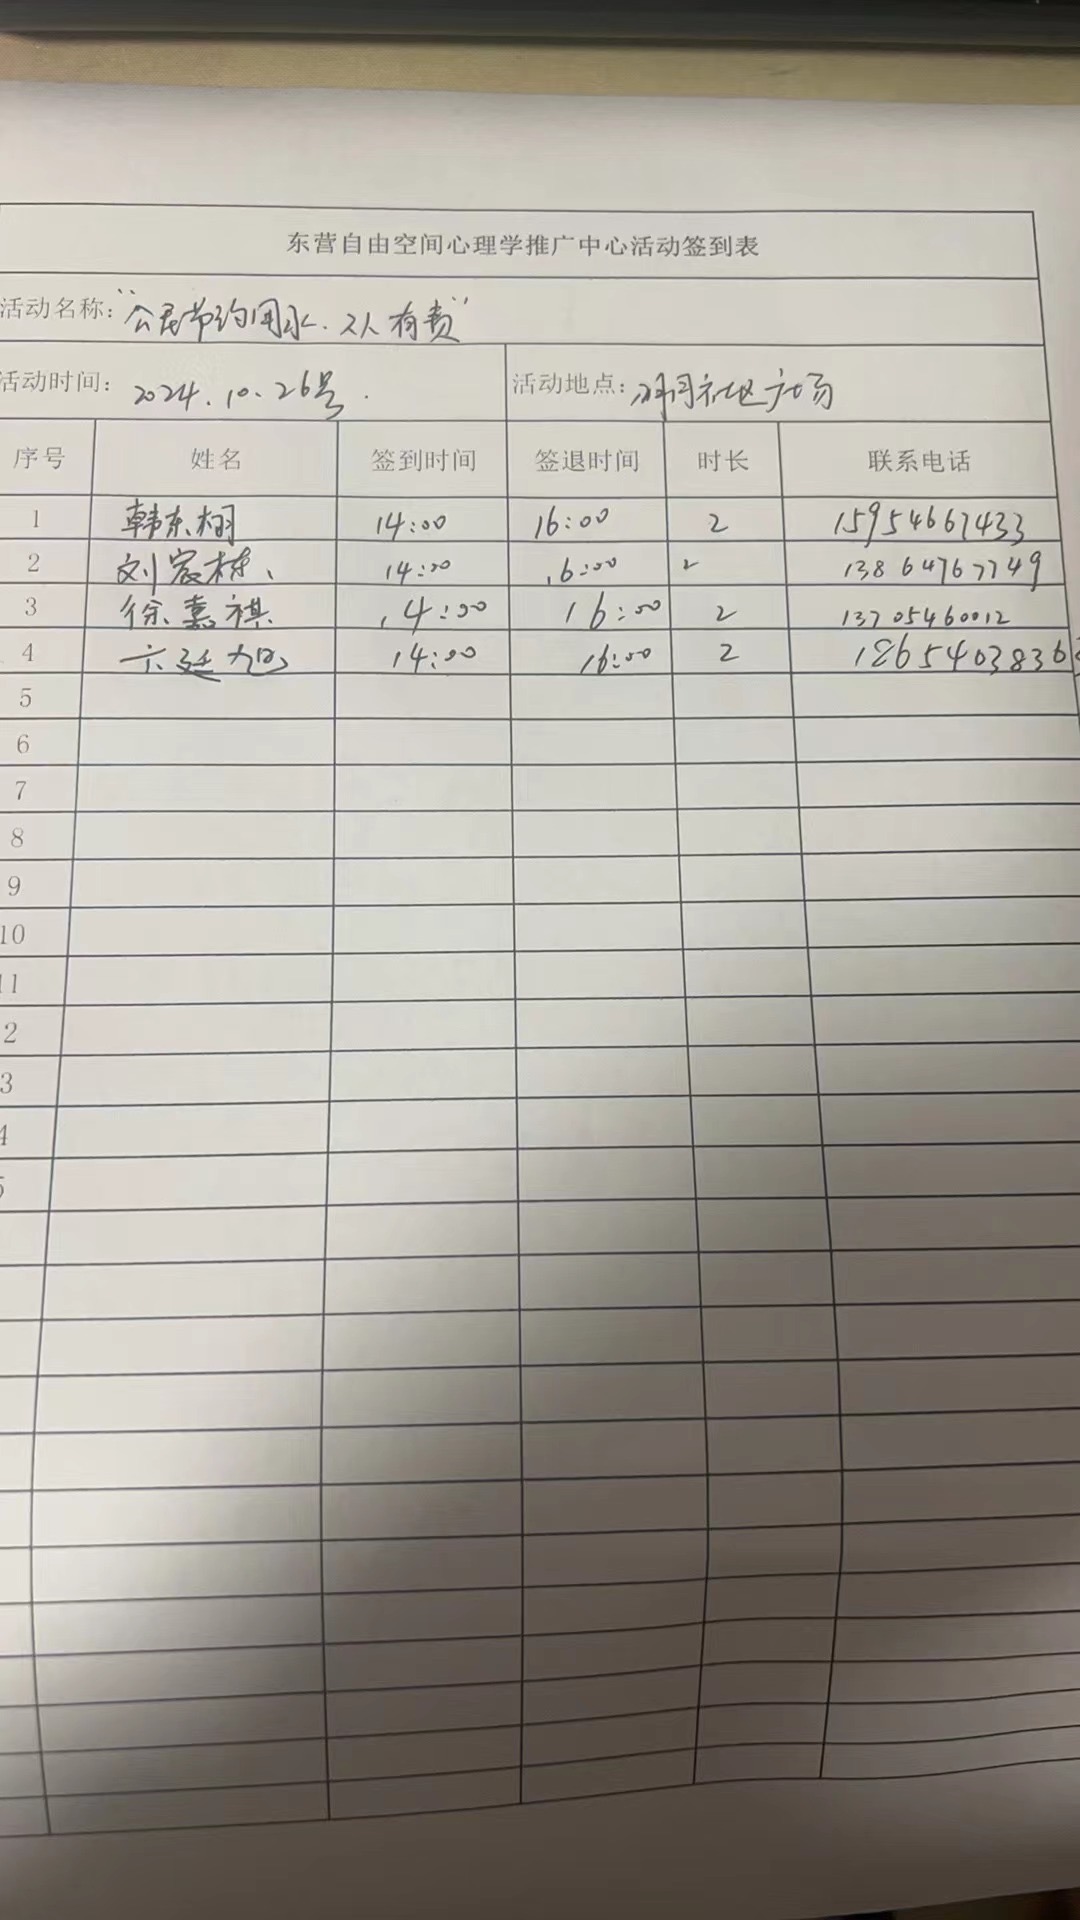 东营自由空间心理学推广中心活动签到表
活动名称："公民节约用水．人人有责"
活动时间：2024.10.26号． 活动地点：社区广场
序号 姓名 签到时间 签退时间 时长 联系电话
1 韩东栩 14:00 16:00 2 15954667433
2 刘宸栋、 14:00 16:00 2 13864767749
3 徐嘉祺 14:00 16:00 2 13705460012
4 廷旭 14:00 16:00 2 1865403836
5
6
7
8
9
10
11
2
3
4
5